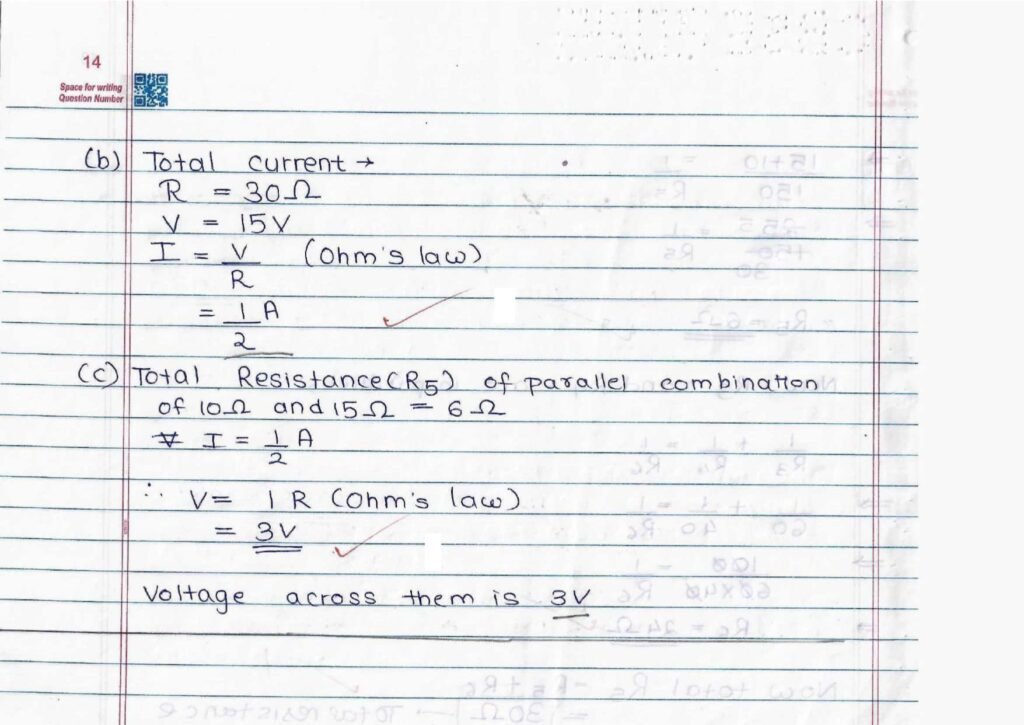 14
Space for writing
Question Number
(b) Total current →
R = 30Ω
V = 15V
I = V/R (Ohm's law)
= 1/2 A
(c) Total Resistance (R5) of parallel combination
of 10Ω and 15Ω = 6Ω
I = 1/2 A
∴ V = IR (Ohm's law)
= 3V
Voltage across them is 3V